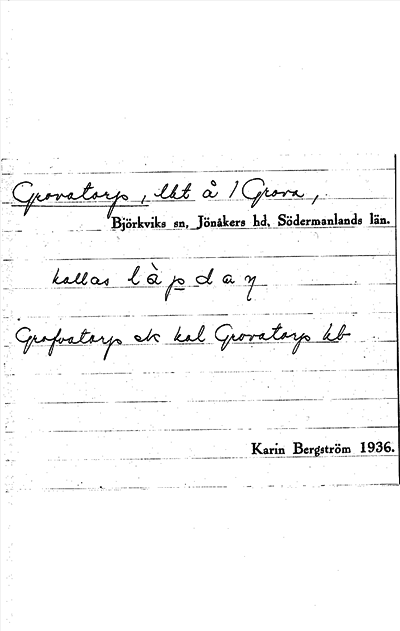 Grovatorp, lht å 1 Grova,
Björkviks sn, Jönåkers hd, Södermanlands län.
kallas
Grofvatorp ek kal Grovatorp kb
Karin Bergström 1936.